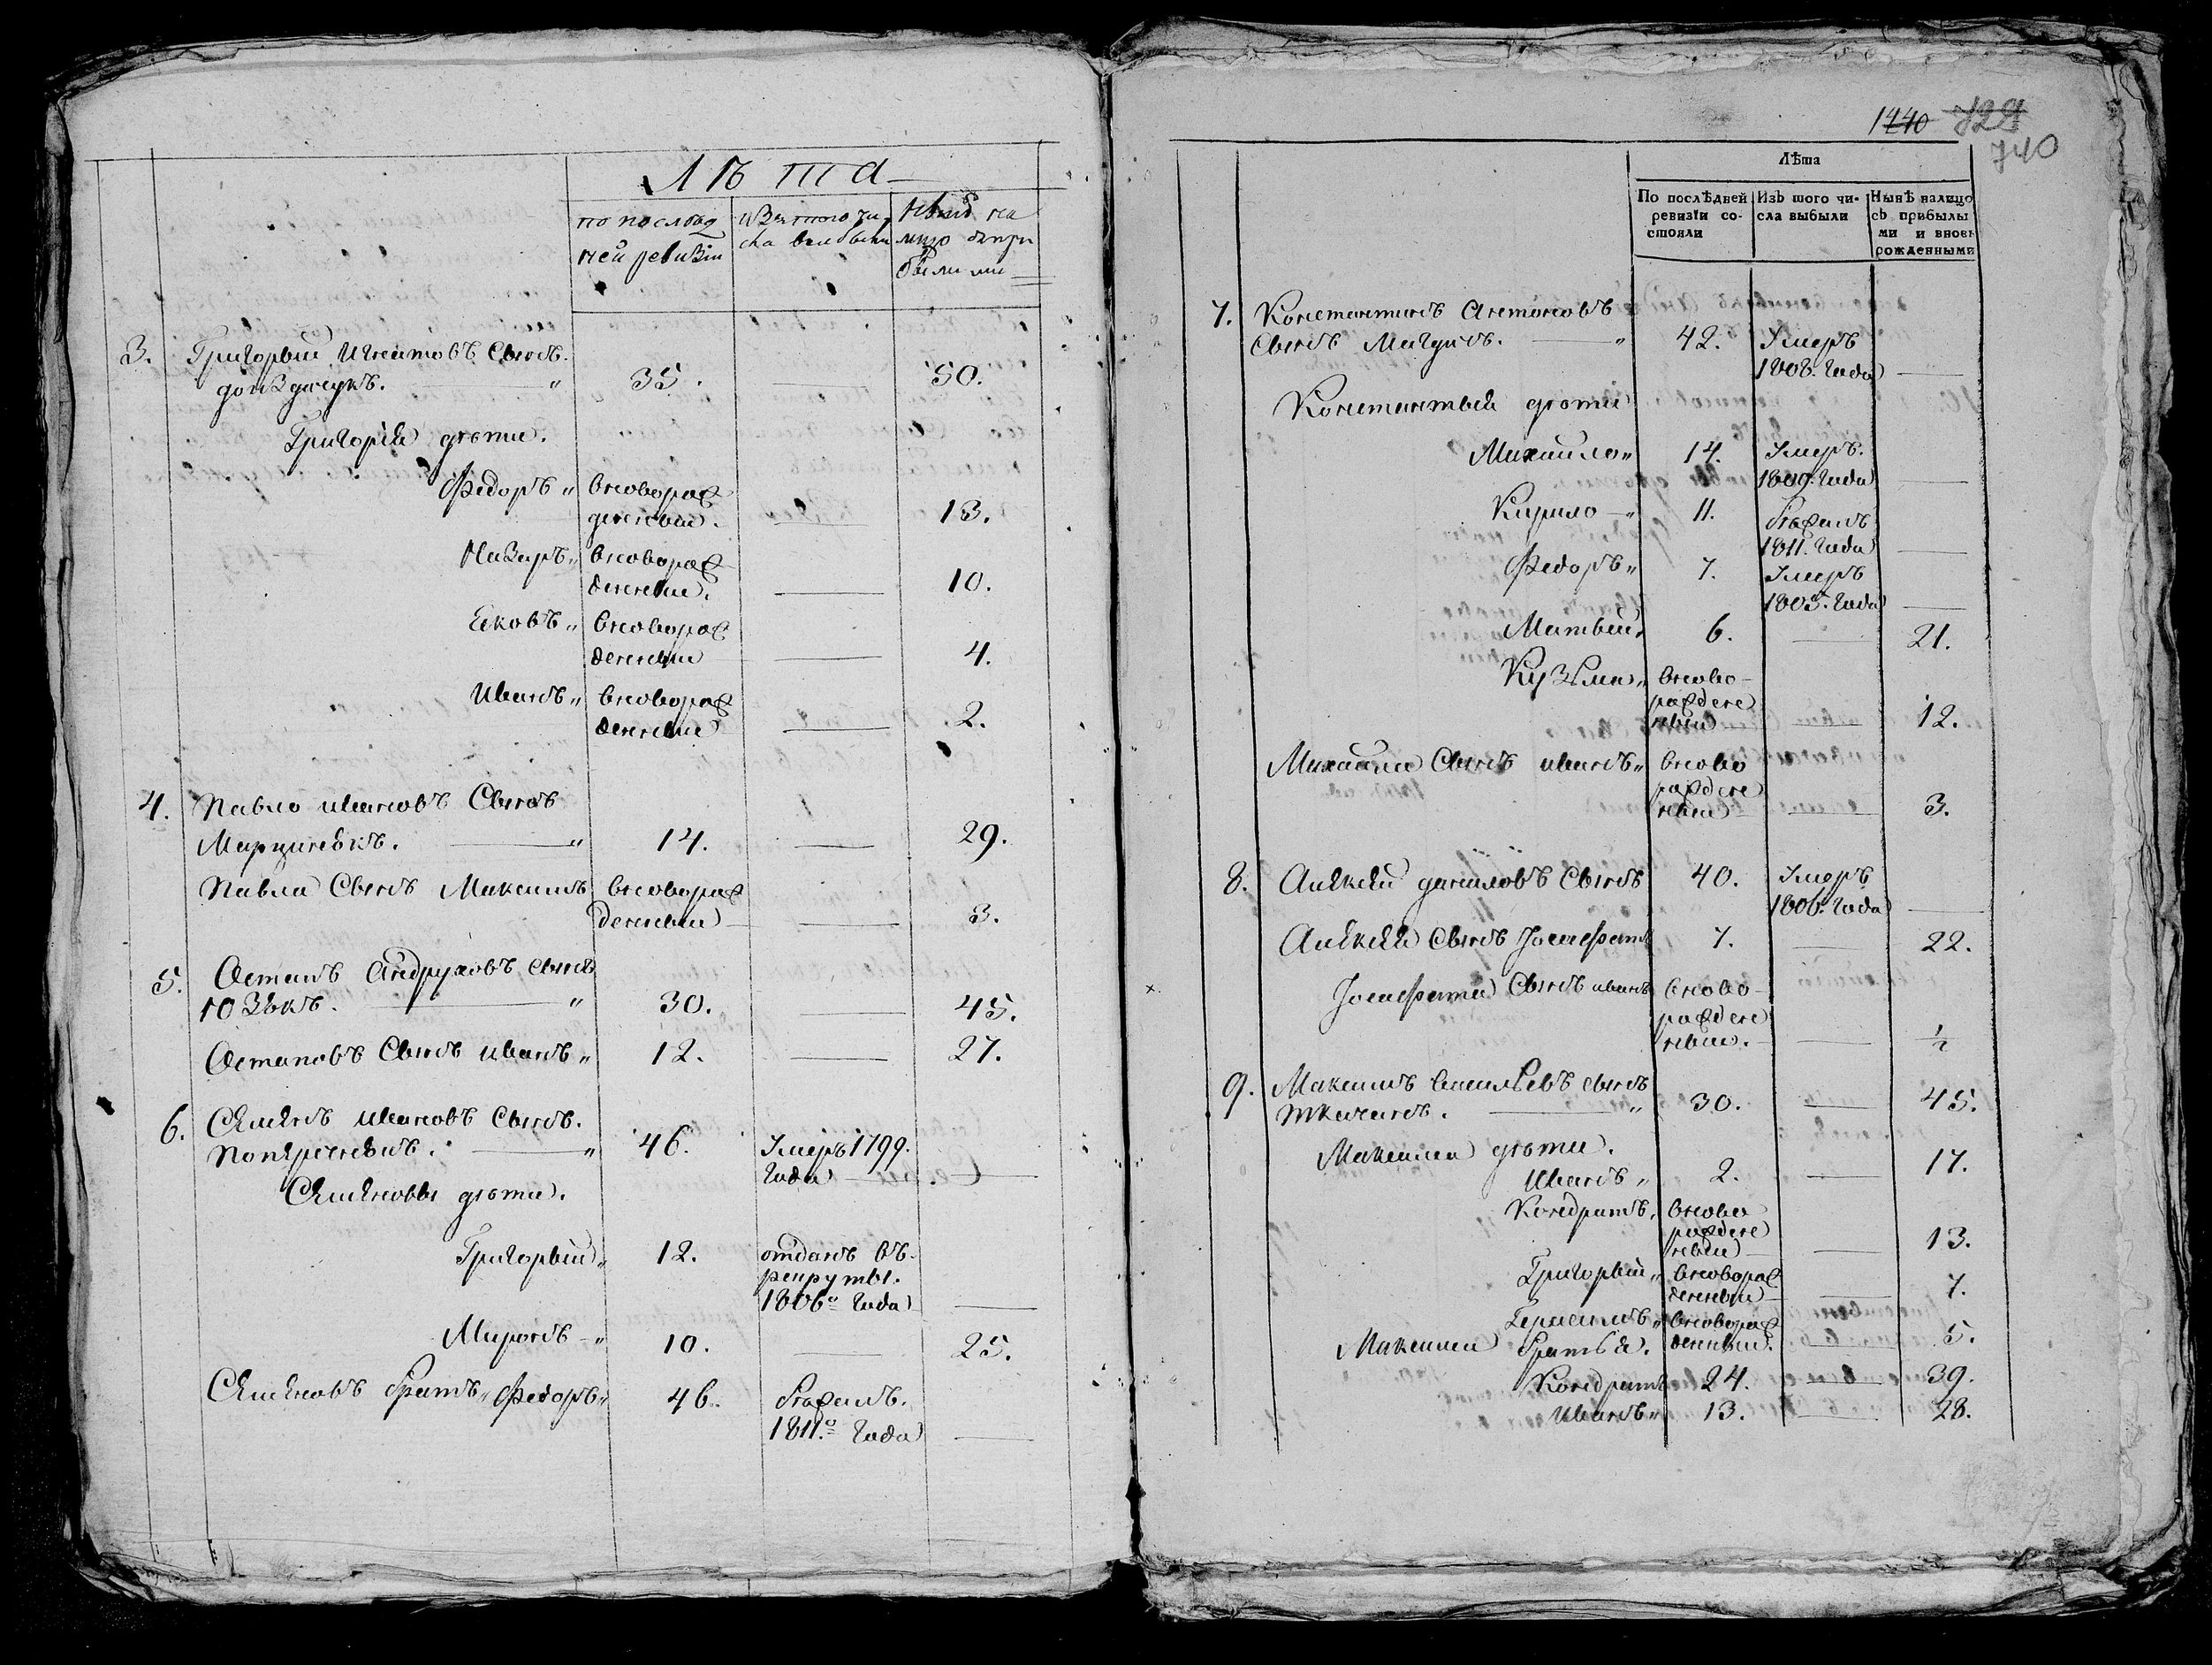 Лѣта
по послѣд
ней ревизіи
изъ того чи
сла выбыли
Нынѣ на
лицо с при
былими
3. Григорый Игнатовъ Сынъ
35. 50.
Григорія дѣти.
Федоръ " вноворож
денный. 13.
Назаръ " вноворож
денный. 10.
Яковъ " вноворож
денный 4.
Иванъ " вноворож
денный 2.
4. Павло ивановъ Сынъ
14. 29.
Павла Сынъ Максимъ вноворож
денный 3.
5. Остапъ Андруховъ сынъ
30. 45.
Остаповъ Сынъ иванъ " 12. 27.
6. Семенъ ивановъ Сынъ.
46. Умеръ 1799.
года
Семеновы дѣти.
Григорый " 12. отданъ въ
рекруты.
1806го года
Миронъ " 10. 25.
Семеновъ братъ " Федоръ " 46. бѣжалъ.
1811го года
1440 729
740
Лѣта
По послѣдней
ревизіи со-
стояли
Изъ того чи-
сла выбыли
Нынѣ налицо
съ прибылы
ми и вновь
рожденными
7. Константинъ Антоновъ
Сынъ 42. Умеръ
1808. года
дѣти
Михайло " 14. Умеръ.
1809. года
Кирило " 11. бѣжалъ
1811. года
Федоръ " 7. Умеръ
1805. года
Матвей " 6. 21.
Кузьма " вново
рожден
ный 12.
Михайла Сынъ иванъ " вново
рожден
ный 3.
8. Алексей даниловъ Сынъ 40. Умеръ
1806. года
Алексея Сынъ Іосафатъ 7. 22.
Іосафата Сынъ иванъ вново
рожден
ный. ½
9. Максимъ васильевъ сынъ
ткачанъ. " 30. 45.
Максима дѣти.
Иванъ " 2. 17.
Кондратъ " вново
рожден
ный 13.
Григорый " вноворож
денный 7.
Герасимъ " вноворож
денный. 5.
Максима братья.
Кондратъ 24. 39.
Иванъ " 13. 28.